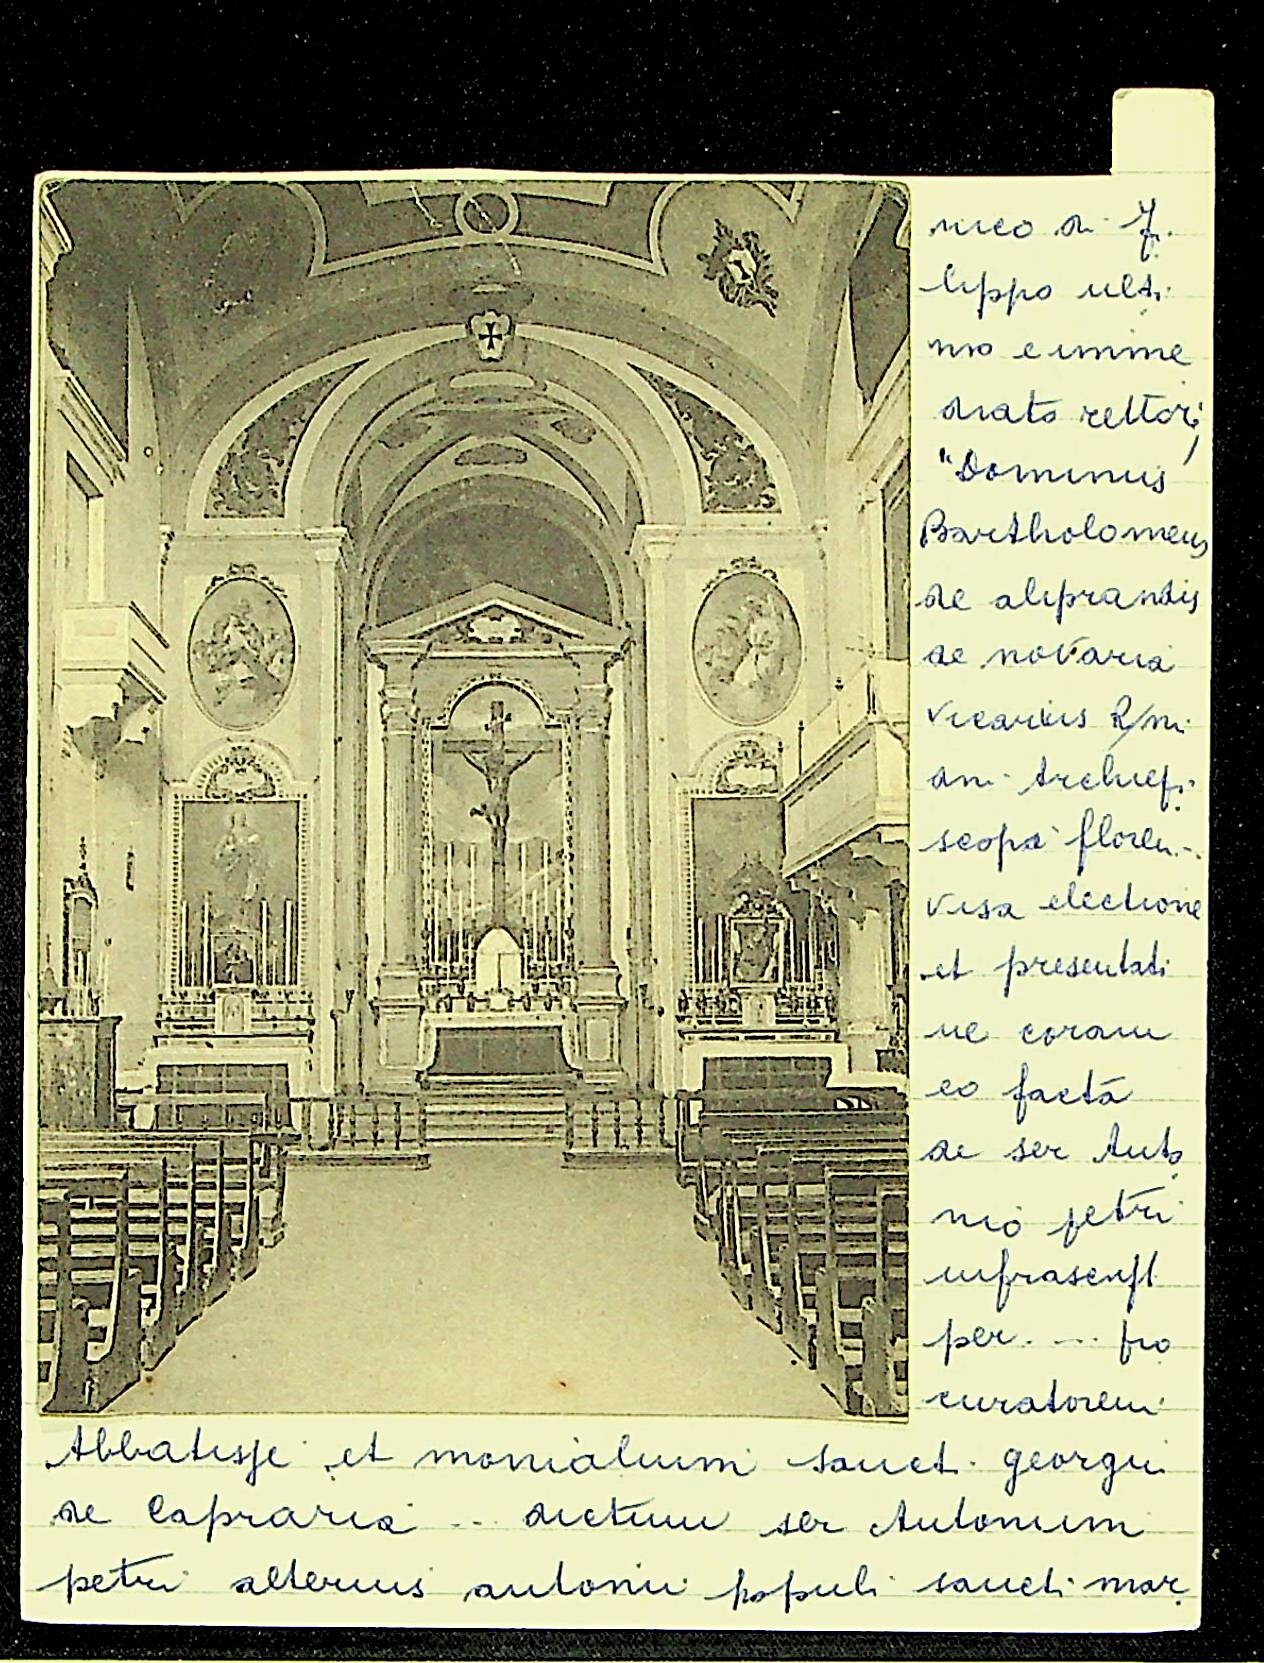 nico di Fi
lippo ulti
mo e imme
diato rettori
"Dominus
Bartholomeus
de aliprandis
de novaria
vicarius R/mi
dni Archiepi
scopi floren..
visa electione
et presentati
ne coram
eo facta
de ser Anto
nio petri
infrascript
per .... pro
curatorem
Abbatisse et monialium sanct. georgii
de Capraria ... dictum ser Antonium
petri alterius antonii populi sancti mar